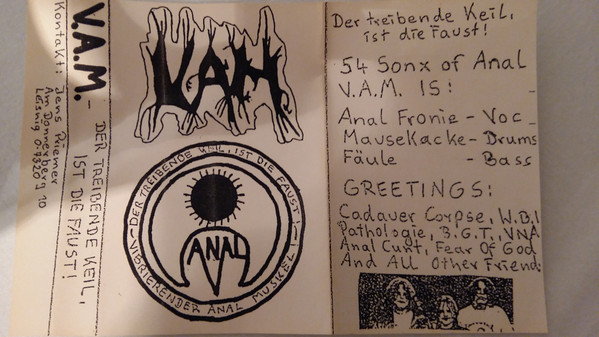 V.A.M. - DER TREIBENDE KEIL,
IST DIE FAUST!
Kontakt: Jens
Am Donnerberg 10
Leisnig O-7320
V.A.M.
~ DER TREIBENDE KEIL, IST DIE FAUST! ~
VIBRIERENDER ANAL MUSKEL
ANAL
Der treibende Keil,
ist die Faust!
54 Sonx of Anal
V.A.M. IS:
Anal Fronie - Voc
Mausekacke - Drums
Fäule - Bass
GREETINGS:
Cadaver Corpse, W.B.I
Pathologie, B.G.T., VNA
Anal Cunt, Fear Of God
And All Other Friend